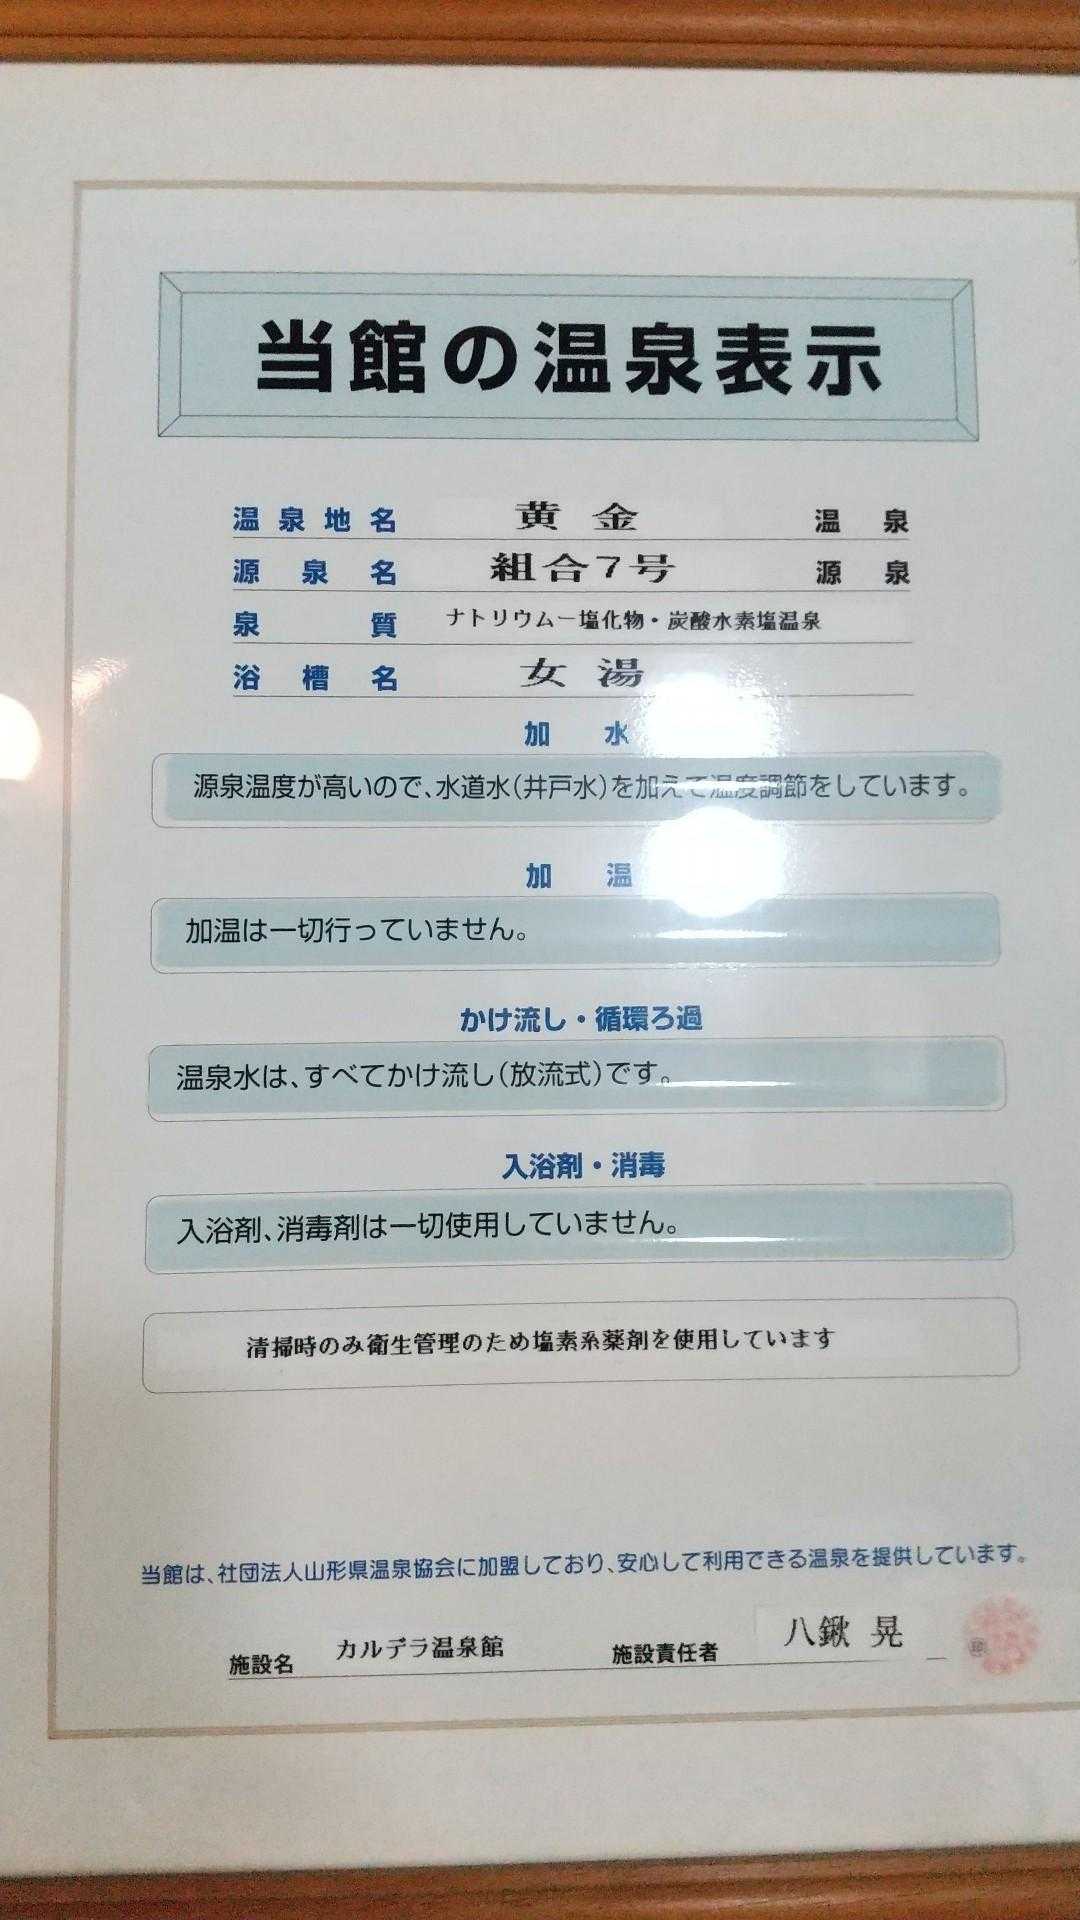 当館の温泉表示
温泉地名 黄金 温泉
源泉名 組合7号 源泉
泉質 ナトリウムー塩化物・炭酸水素塩温泉
浴槽名 女湯
加水
源泉温度が高いので、水道水(井戸水)を加えて温度調節をしています。
加温
加温は一切行っていません。
かけ流し・循環ろ過
温泉水は、すべてかけ流し(放流式)です。
入浴剤・消毒
入浴剤、消毒剤は一切使用していません。
清掃時のみ衛生管理のため塩素系薬剤を使用しています
当館は、社団法人山形県温泉協会に加盟しており、安心して利用できる温泉を提供しています。
施設名 カルデラ温泉館 施設責任者 八鍬 晃